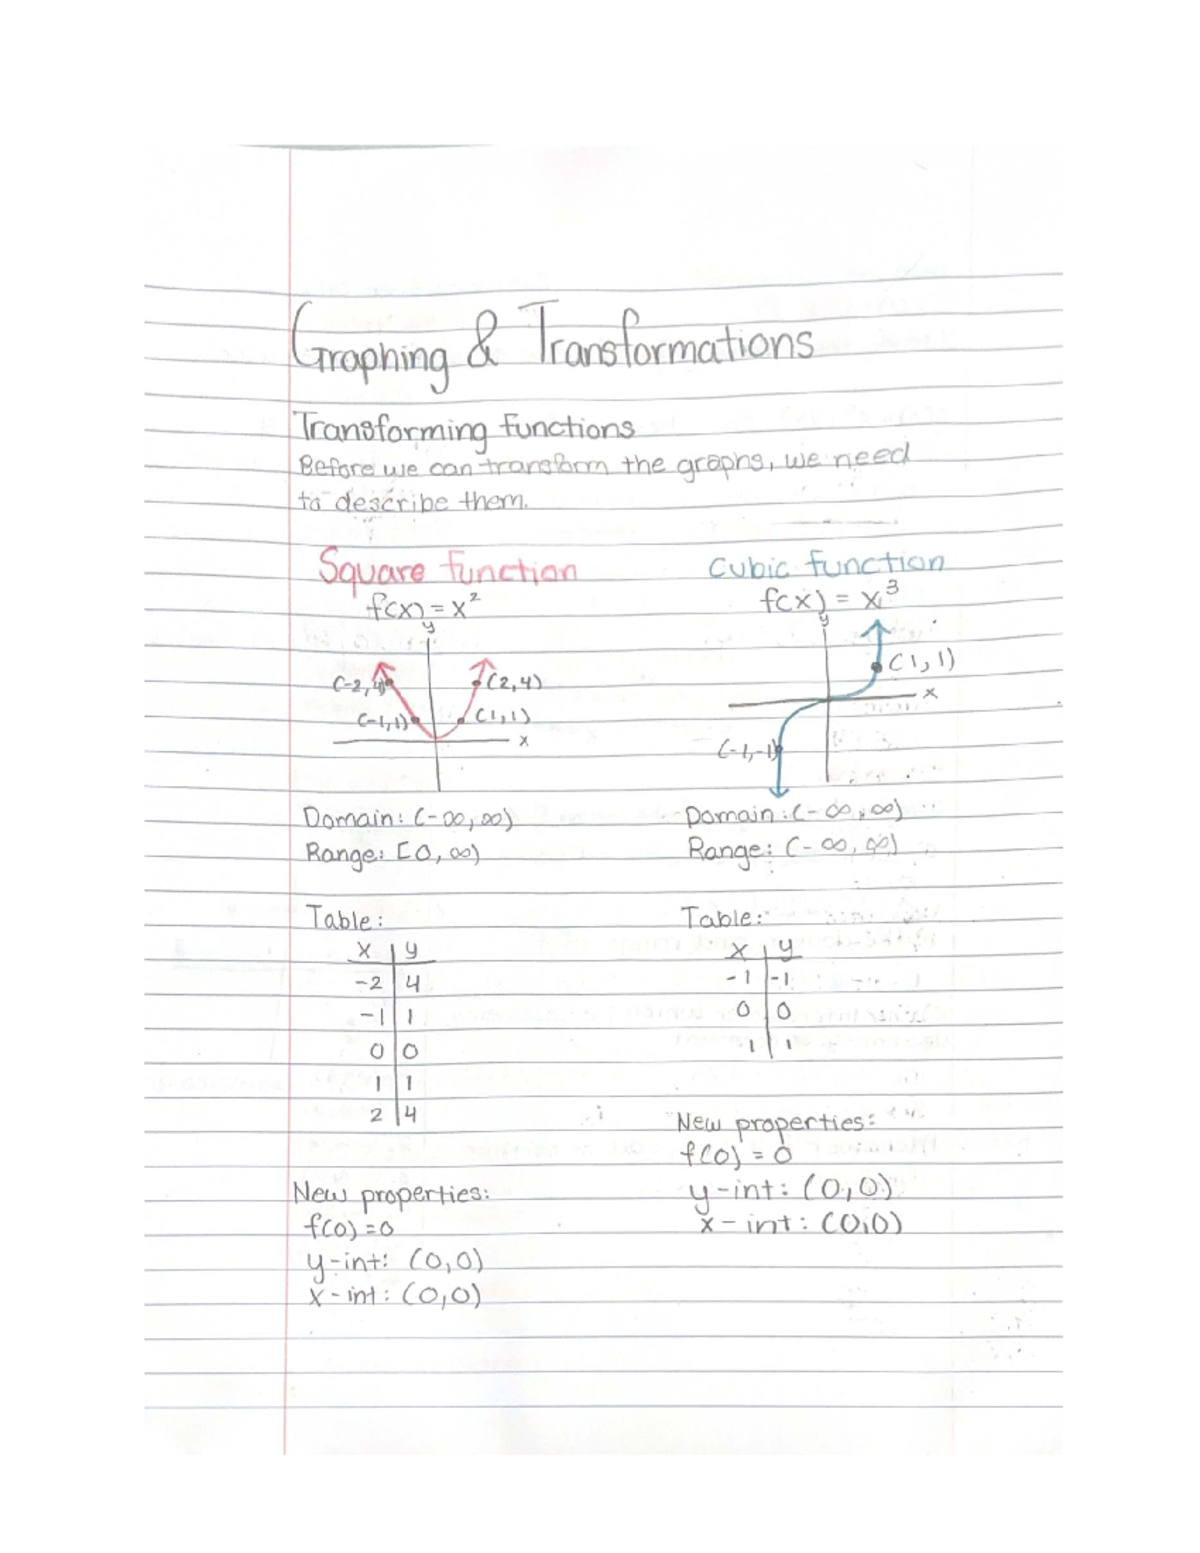 Graphing & Transformations
Transforming functions
Before we can transform the graphs, we need
to describe them.
Square function
f(x) = x²
y
(-2,4)
(2,4)
(-1,1)
(1,1)
x
Domain: (-∞,∞)
Range: [0,∞)
Table:
x y
-2 4
-1 1
0 0
1 1
2 4
New properties:
f(0)=0
y-int: (0,0)
x-int: (0,0)
Cubic function
f(x) = x³
y
(1,1)
x
(-1,-1)
Domain: (-∞,∞)
Range: (-∞,∞)
Table:
x y
-1 -1
0 0
1 1
New properties:
f(0) = 0
y-int: (0,0)
x-int: (0,0)